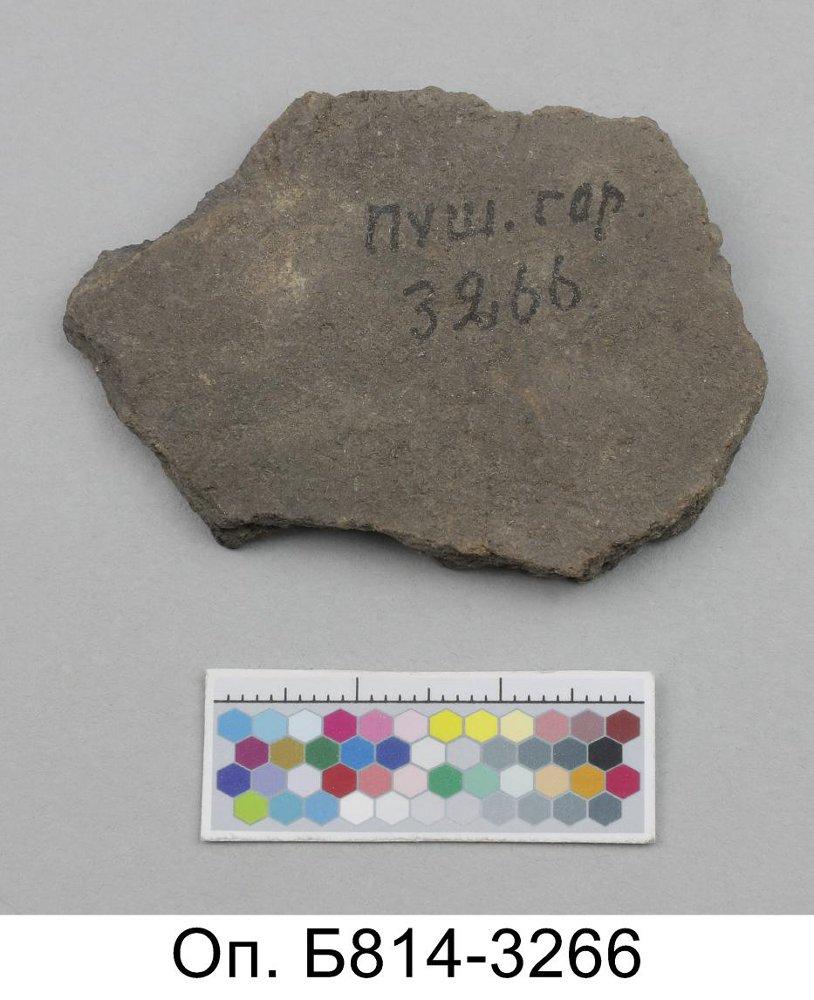 пуш. гор.
3266
Оп. Б814-3266